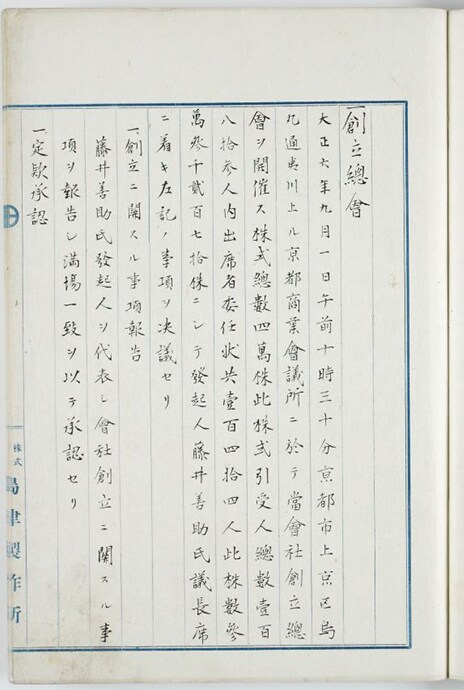 一創立總會
大正六年九月一日午前十時三十分京都市上京区烏
丸通夷川上ル京都商業會議所ニ於テ當會社創立總
會ヲ開催ス株式總數四萬株此株式引受人總數壹百
八拾参人内出席者委任状共壹百四拾四人此株數参
萬参千貳百七拾株ニシテ發起人藤井善助氏議長席
ニ着キ左記ノ事項ヲ决議セリ
一創立ニ関スル事項報告
藤井善助氏發起人ヲ代表シ會社創立ニ関スル事
項ヲ報告シ満場一致ヲ以テ承認セリ
一定欵承認
株式
島津製作所